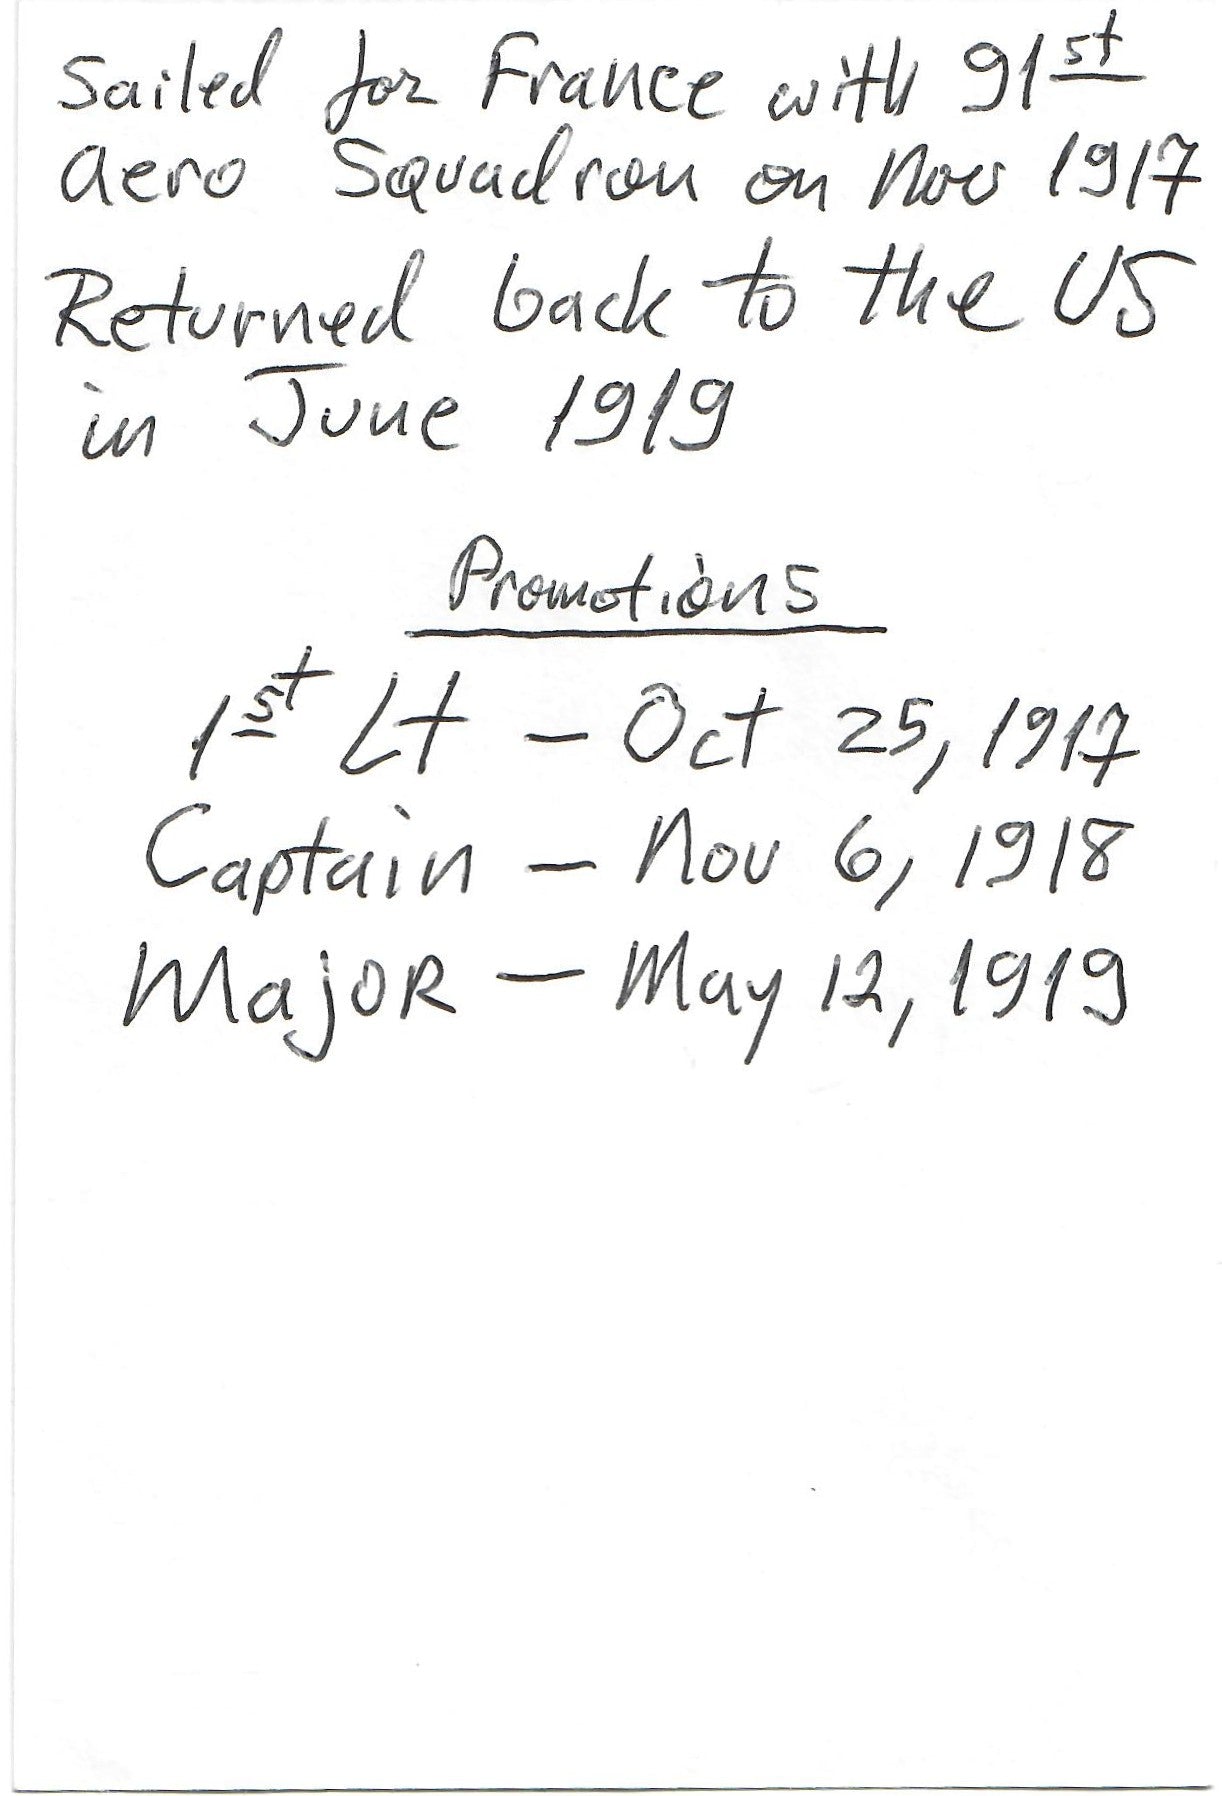 Sailed for France with 91st
aero Squadron on Nov 1917
Returned back to the US
in June 1919
Promotions
1st Lt - Oct 25, 1917
Captain - Nov 6, 1918
Major - May 12, 1919